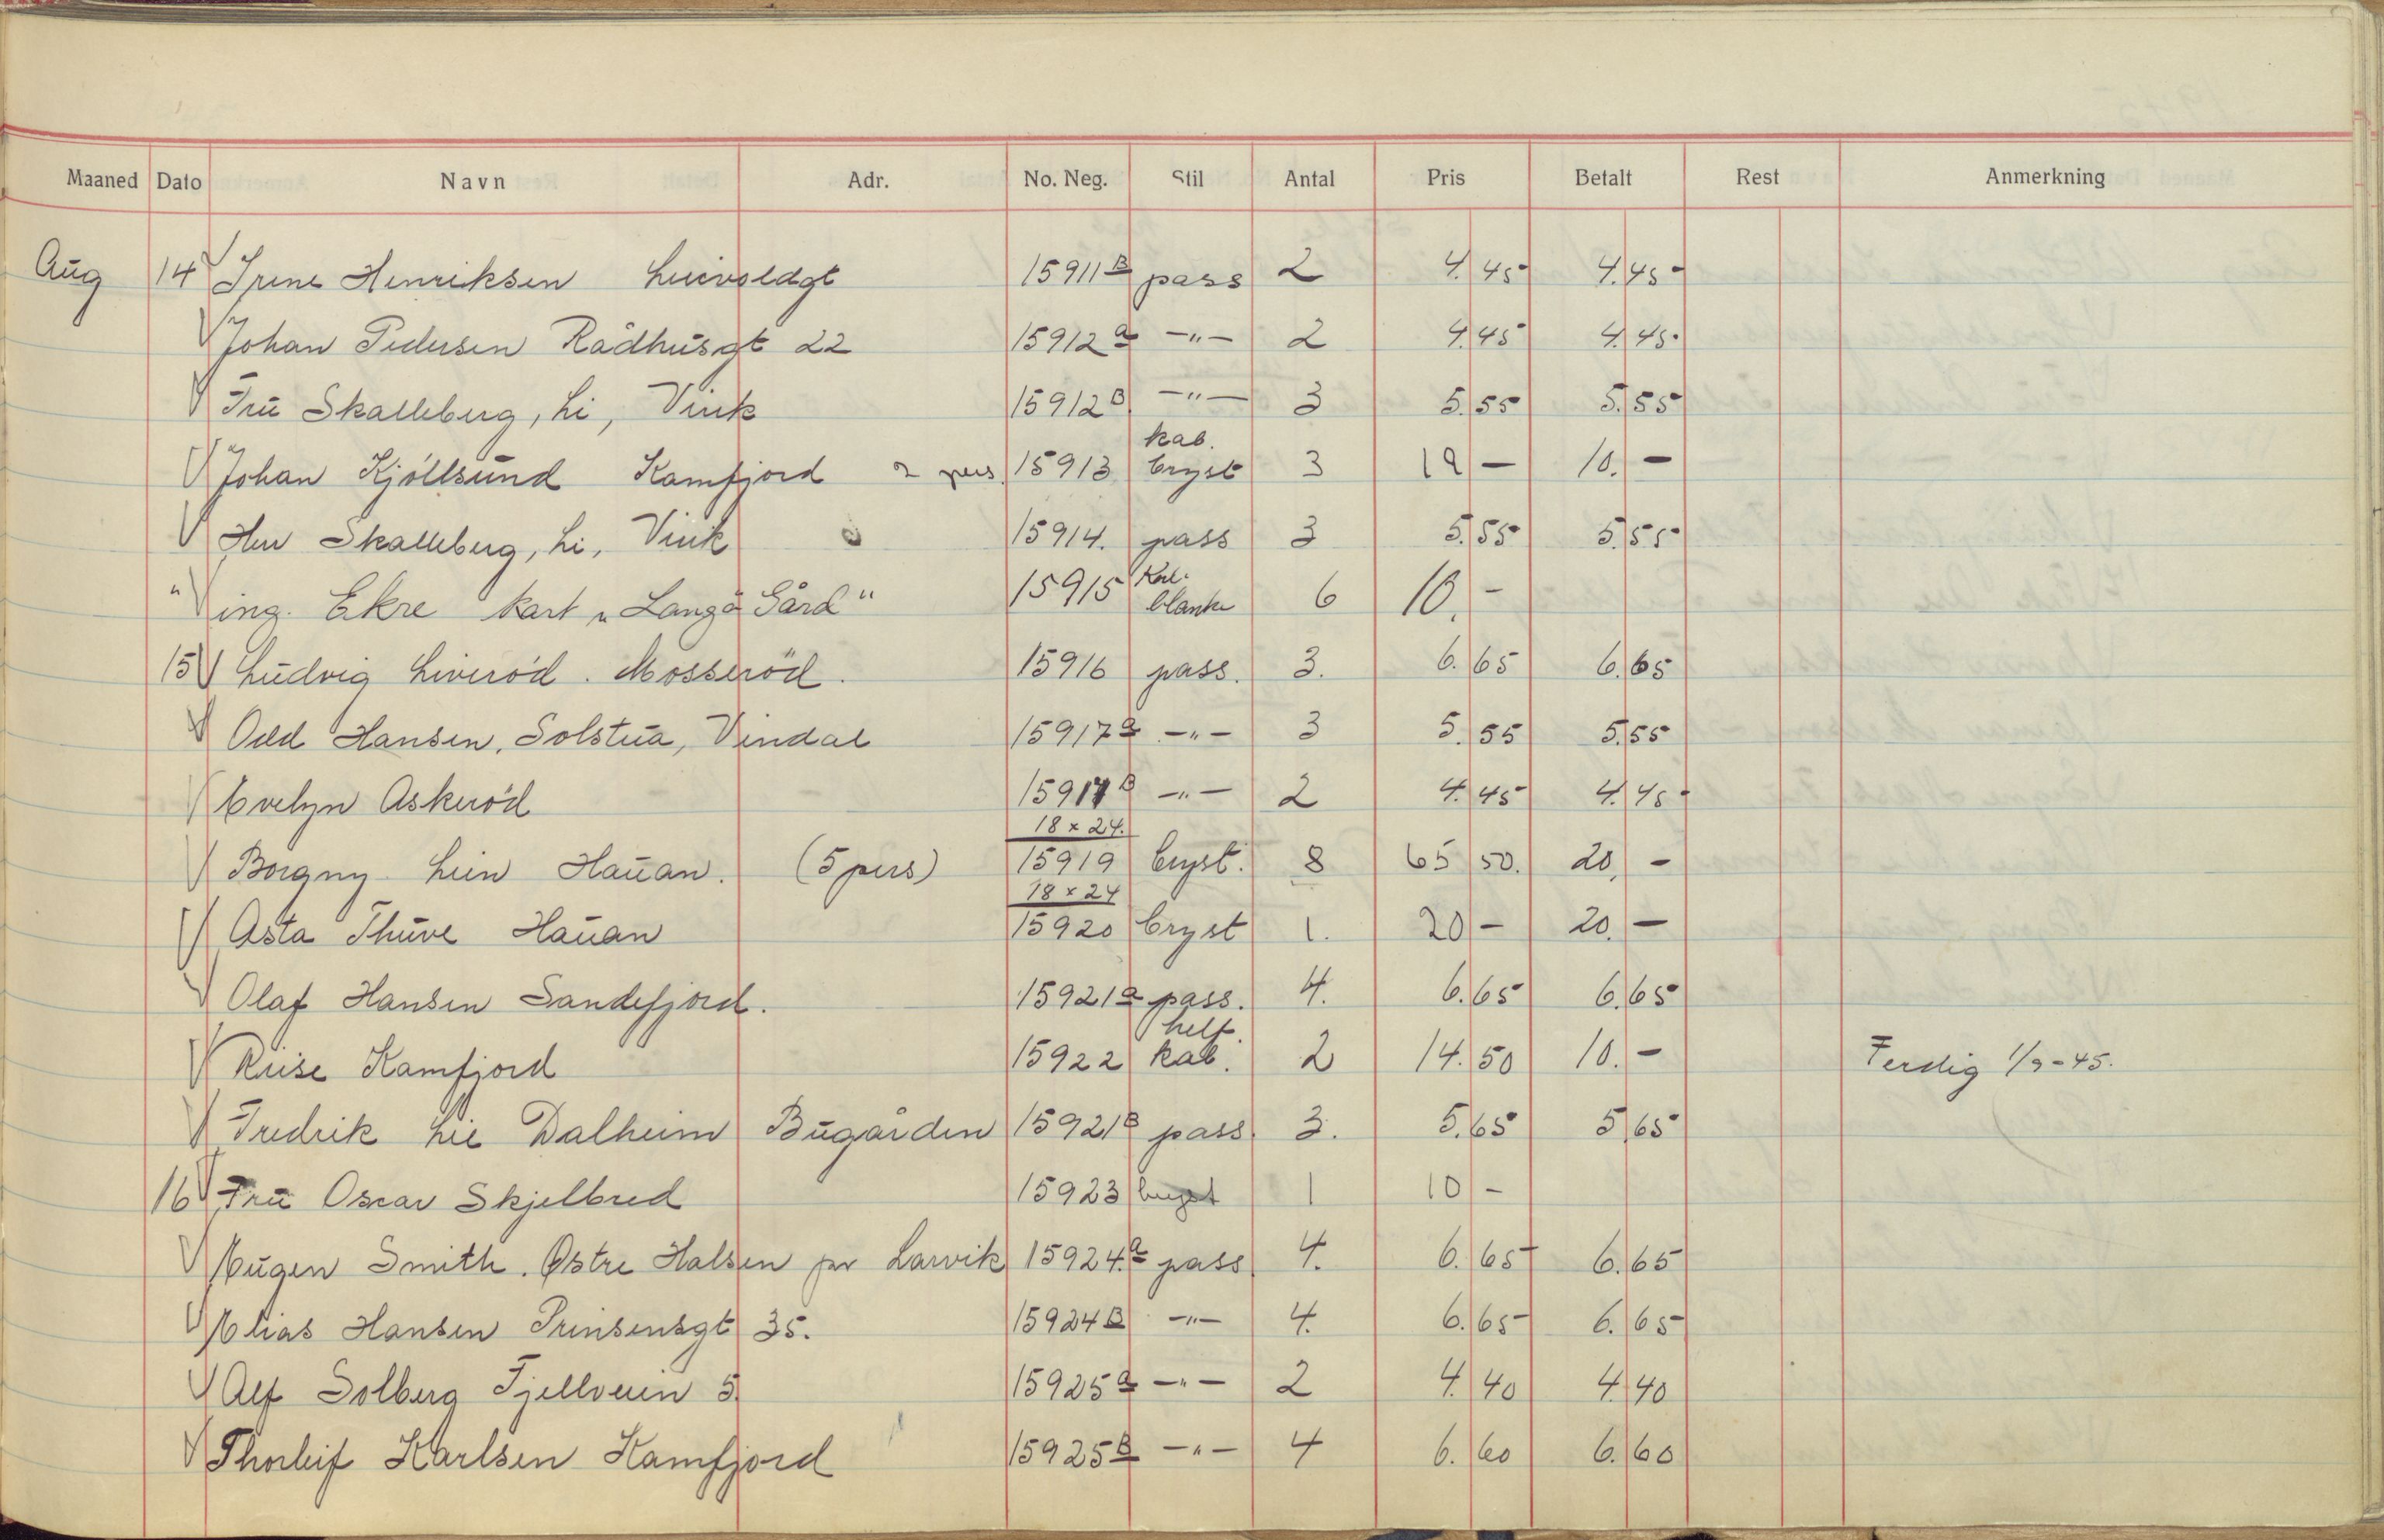 Maaned Dato Navn Adr. No. Neg. Stil Antal Pris Betalt Rest Anmerkning
Aug 14 Irene Henriksen 15911 B pass 2 4.45 4.45
Johan Pedersen Rådhusgt 22 15912 a -"- 2 4.45 4.45
Fru Skalleberg, Li, Virik 15912 B -"- 3 5.55 5.55
kab.
Johan Kjöllsund Kamfjord 2 pers. 15913 bryst 3 19 - 10. -
Herr Skalleberg, Li, Virik 15914. pass 3 5.55 5.55
Kab.
" ing. Ekre kart „Langö Gård" 15915 blanke 6 10. -
15 Ludvig Liveröd. Mosseröd. 15916 pass. 3. 6.65 6.65
Odd Hansen, Solstua, Vindal 15917 a -"- 3 5.55 5.55
Evelyn Askeröd 15917 B -"- 2 4.45 4.45
18 x 24.
Borgny Lien Hauan. (5 pers) 15919 bryst. 8 65 50. 20. -
18 x 24
Asta Thuve Hauan 15920 bryst 1. 20 - 20. -
Olaf Hansen Sandefjord. 15921 a pass. 4. 6.65 6.65
helf.
Riise Kamfjord 15922 kab. 2 14.50 10. - Ferdig 1/9-45.
Fredrik Lie Dalheim Bugården 15921 B pass. 3. 5.65 5.65
16 Fru Oscar Skjelbred 15923 bryst 1 10 -
Eugen Smith. Østre Halsen pr Larvik 15924. a pass 4. 6.65 6.65
Elias Hansen Prinsensgt 35. 15924 B -"- 4. 6.65 6.65
Alf Solberg Fjellveien 5. 15925 a -"- 2 4.40 4.40
Thorleif Karlsen Kamfjord 15925 B -"- 4 6.60 6.60